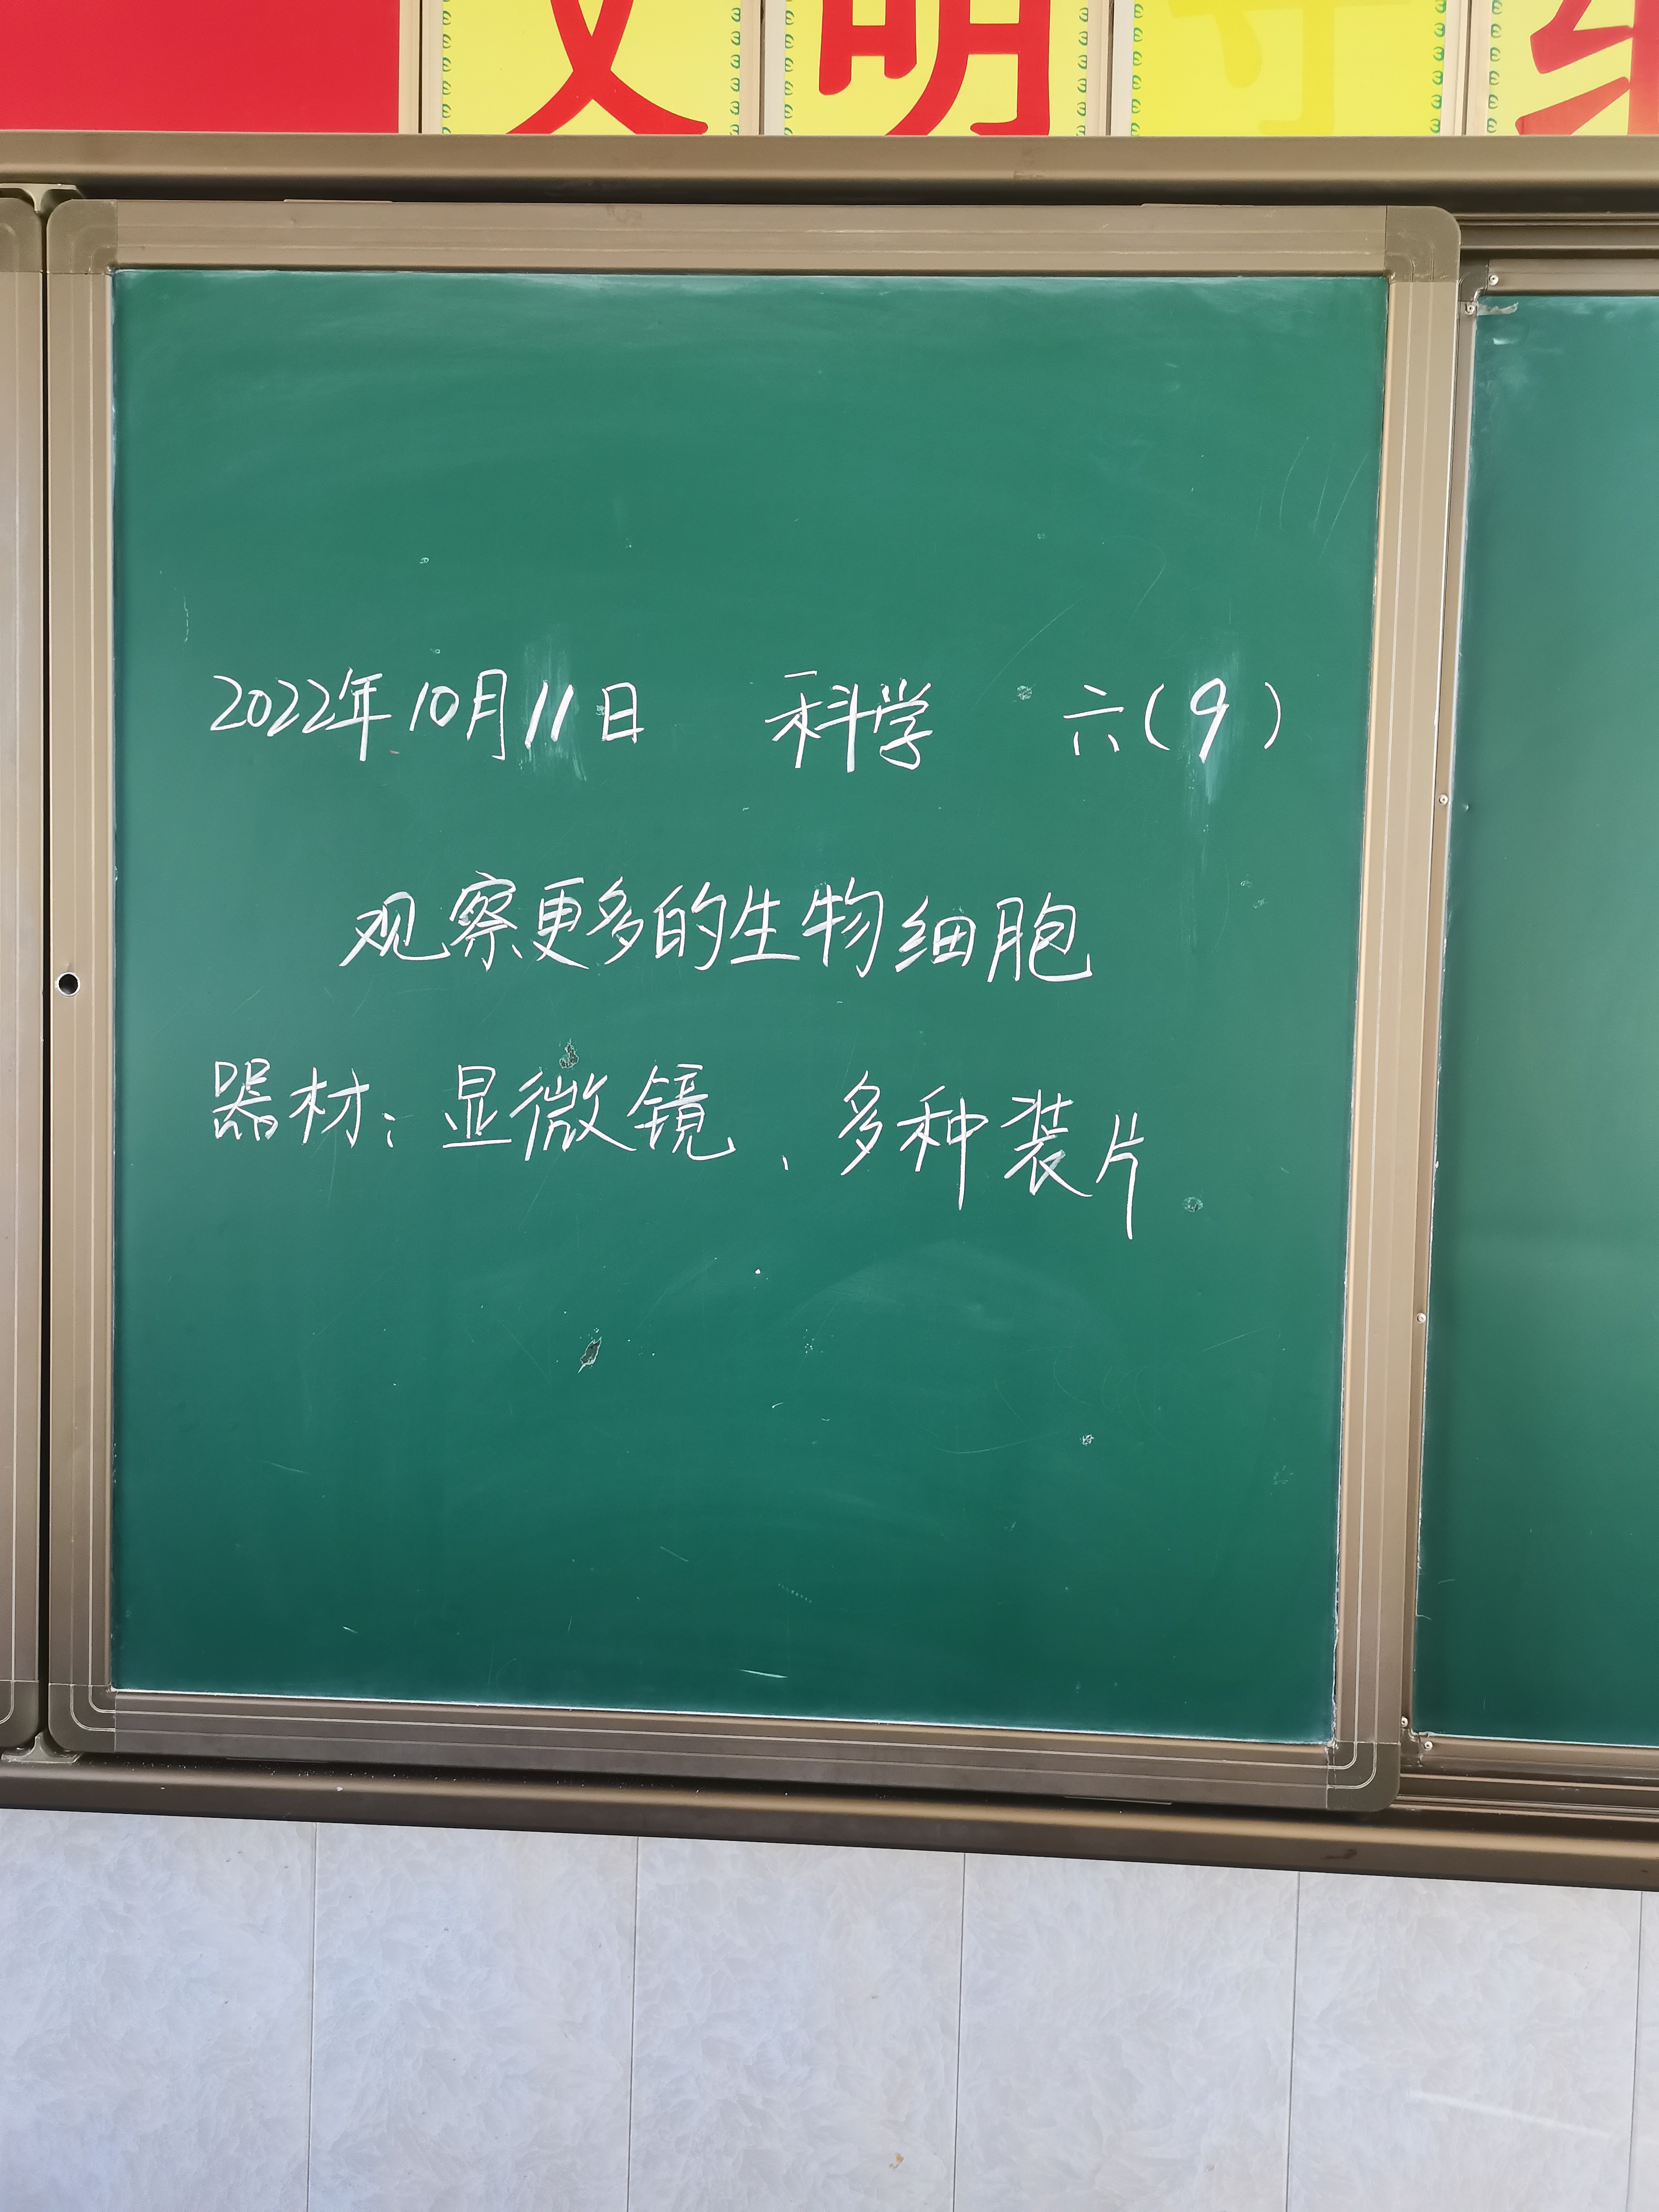 文明守纪
2022年10月11日 科学 六(9)
观察更多的生物细胞
器材:显微镜、多种装片